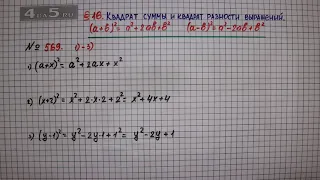 4 5
§ 16. Квадрат суммы и квадрат разности выражений.
(a+b)² = a²+2ab+b² (a-b)² = a²-2ab+b²
№ 569. 1)-3)
1) (a+x)² = a²+2ax+x²
2) (x+2)² = x²+2·x·2+2² = x²+4x+4
3) (y-1)² = y²-2y·1+1² = y²-2y+1